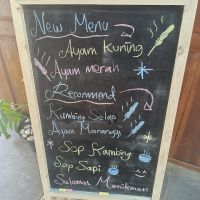 New Menu
Ayam Kuning
Ayam merah
Recommend
Kambing
Ayam
Sop Kambing
Sop Sapi
Selamat Menikmati